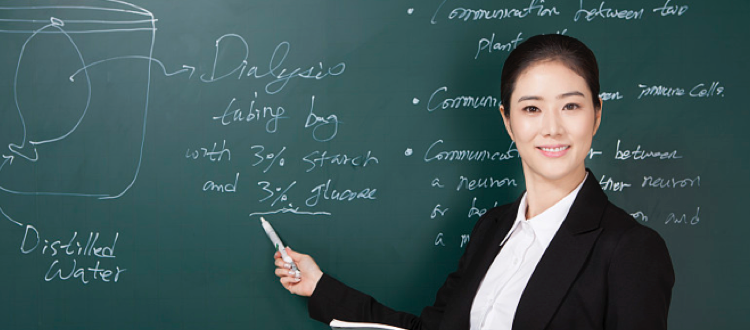 Dialysis
tubing bag
with 3% starch
and 3% glucose
Distilled
Water
• Communication between two
plant
• Communi immune Cells.
• Communicat between
a neuron neuron
or and
a